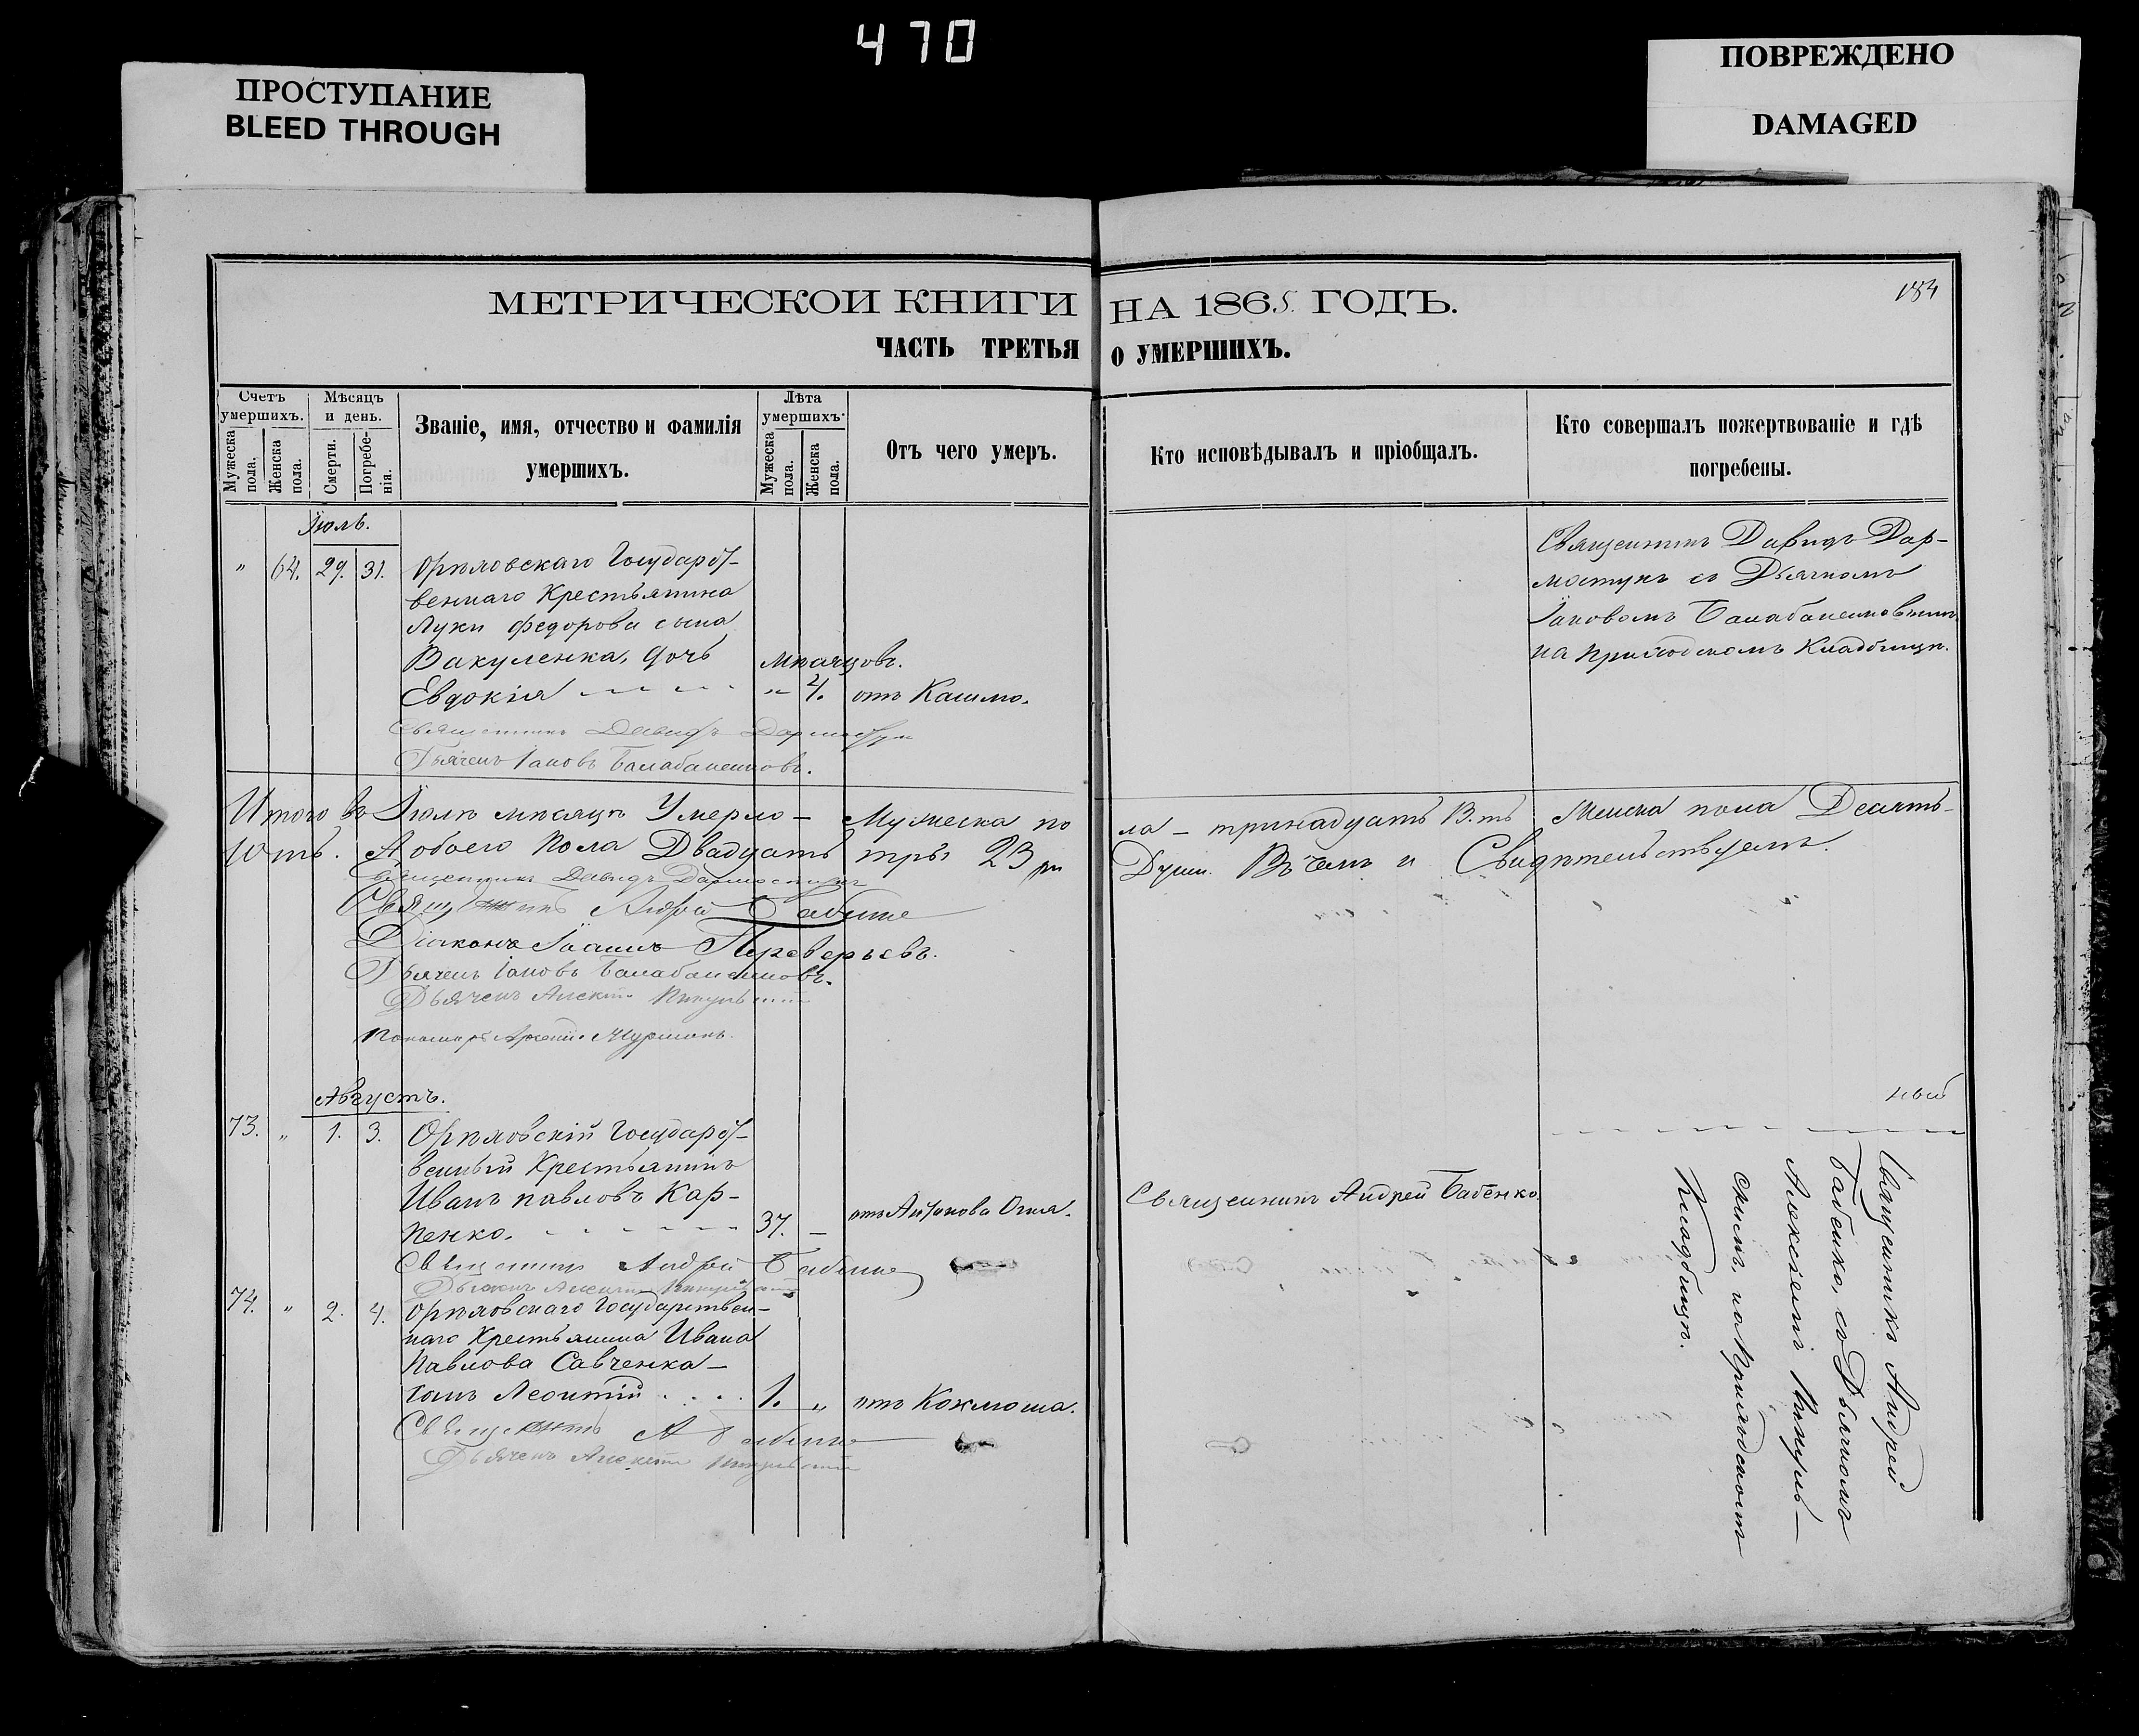 470
ПРОСТУПАНИЕ
BLEED THROUGH
ПОВРЕЖДЕНО
DAMAGED
184
МЕТРИЧЕСКОЙ КНИГИ НА 1865. ГОДЪ.
ЧАСТЬ ТРЕТЬЯ О УМЕРШИХЪ.
Счетъ умершихъ.
Мужеска пола.
Женска пола.
Мѣсяцъ и день.
Смерти.
Погребенія.
Званіе, имя, отчество и фамилія
умершихъ.
Лѣта умершихъ.
Мужеска пола.
Женска пола.
Отъ чего умеръ.
Кто исповѣдывалъ и пріобщалъ.
Кто совершалъ пожертвованіе и гдѣ
погребены.
Іюль.
" 64. 29. 31. Орѣховскаго Государст-
веннаго Крестьянина
Луки Федорова сына
Вакуленка, дочь мѣсяцовъ.
Евдокія " 4. отъ Кашлю.
Священникъ Давидъ
Дьячекъ Іаковъ Балабаненковъ.
Священникъ Давидъ Дар-
мостукъ съ Дьячкомъ
Іаковомъ Балабаненковымъ
на приходскомъ Кладбищѣ.
Итого въ Іюлѣ мѣсяцѣ Умерло — Мужеска по
ла — тринадцать 13.ть Женска пола Десять —
10ть. А обоего Пола Двадцать три 23 ри
Душ. Въ чемъ и Свидѣтельствуемъ.
Священникъ Давидъ Дармостукъ
Священникъ Андрей Бабенко
Діаконъ Іоаннъ
Дьячекъ Іаковъ Балабаненковъ.
Дьячекъ Алексѣй
Пономарь
Августъ.
73. " 1. 3. Орѣховскій Государст-
венный Крестьянинъ
Иванъ Павловъ Кар-
пенко. 37. — отъ Антонова Огня.
Священникъ Андрей Бабенко.
Священникъ Андрей Бабенко
Дьячекъ Алексѣй
74. " 2. 4. Орѣховскаго Государствен-
наго Крестьянина Ивана
Павлова Савченка —
сынъ Леонтій 1. " отъ Коклюша.
Священникъ А Бабенко
Дьячекъ Алексѣй
Священникъ Андрей
Бабенко, съ Дьячкомъ
Алексѣемъ
на Приходскомъ
Кладбищѣ.